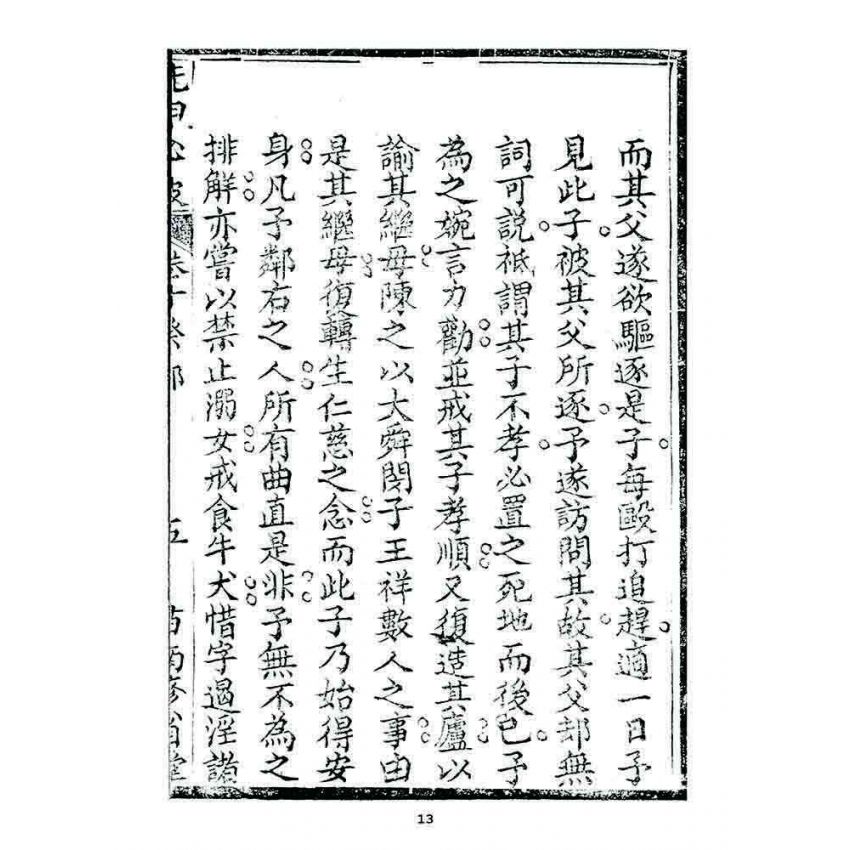 而其父遂欲驅逐是子每毆打追趕適一日予
見此子被其父所逐予遂訪問其故其父却無
詞可說祗謂其子不孝必置之死地而後已予
為之婉言力勸並戒其子孝順又復造其廬以
諭其繼母陳之以大舜閔子王祥數人之事由
是其繼母復轉生仁慈之念而此子乃始得安
身凡予鄰右之人所有曲直是非予無不為之
排解亦嘗以禁止溺女戒食牛犬惜字遏淫諸
卷十癸部
五
13